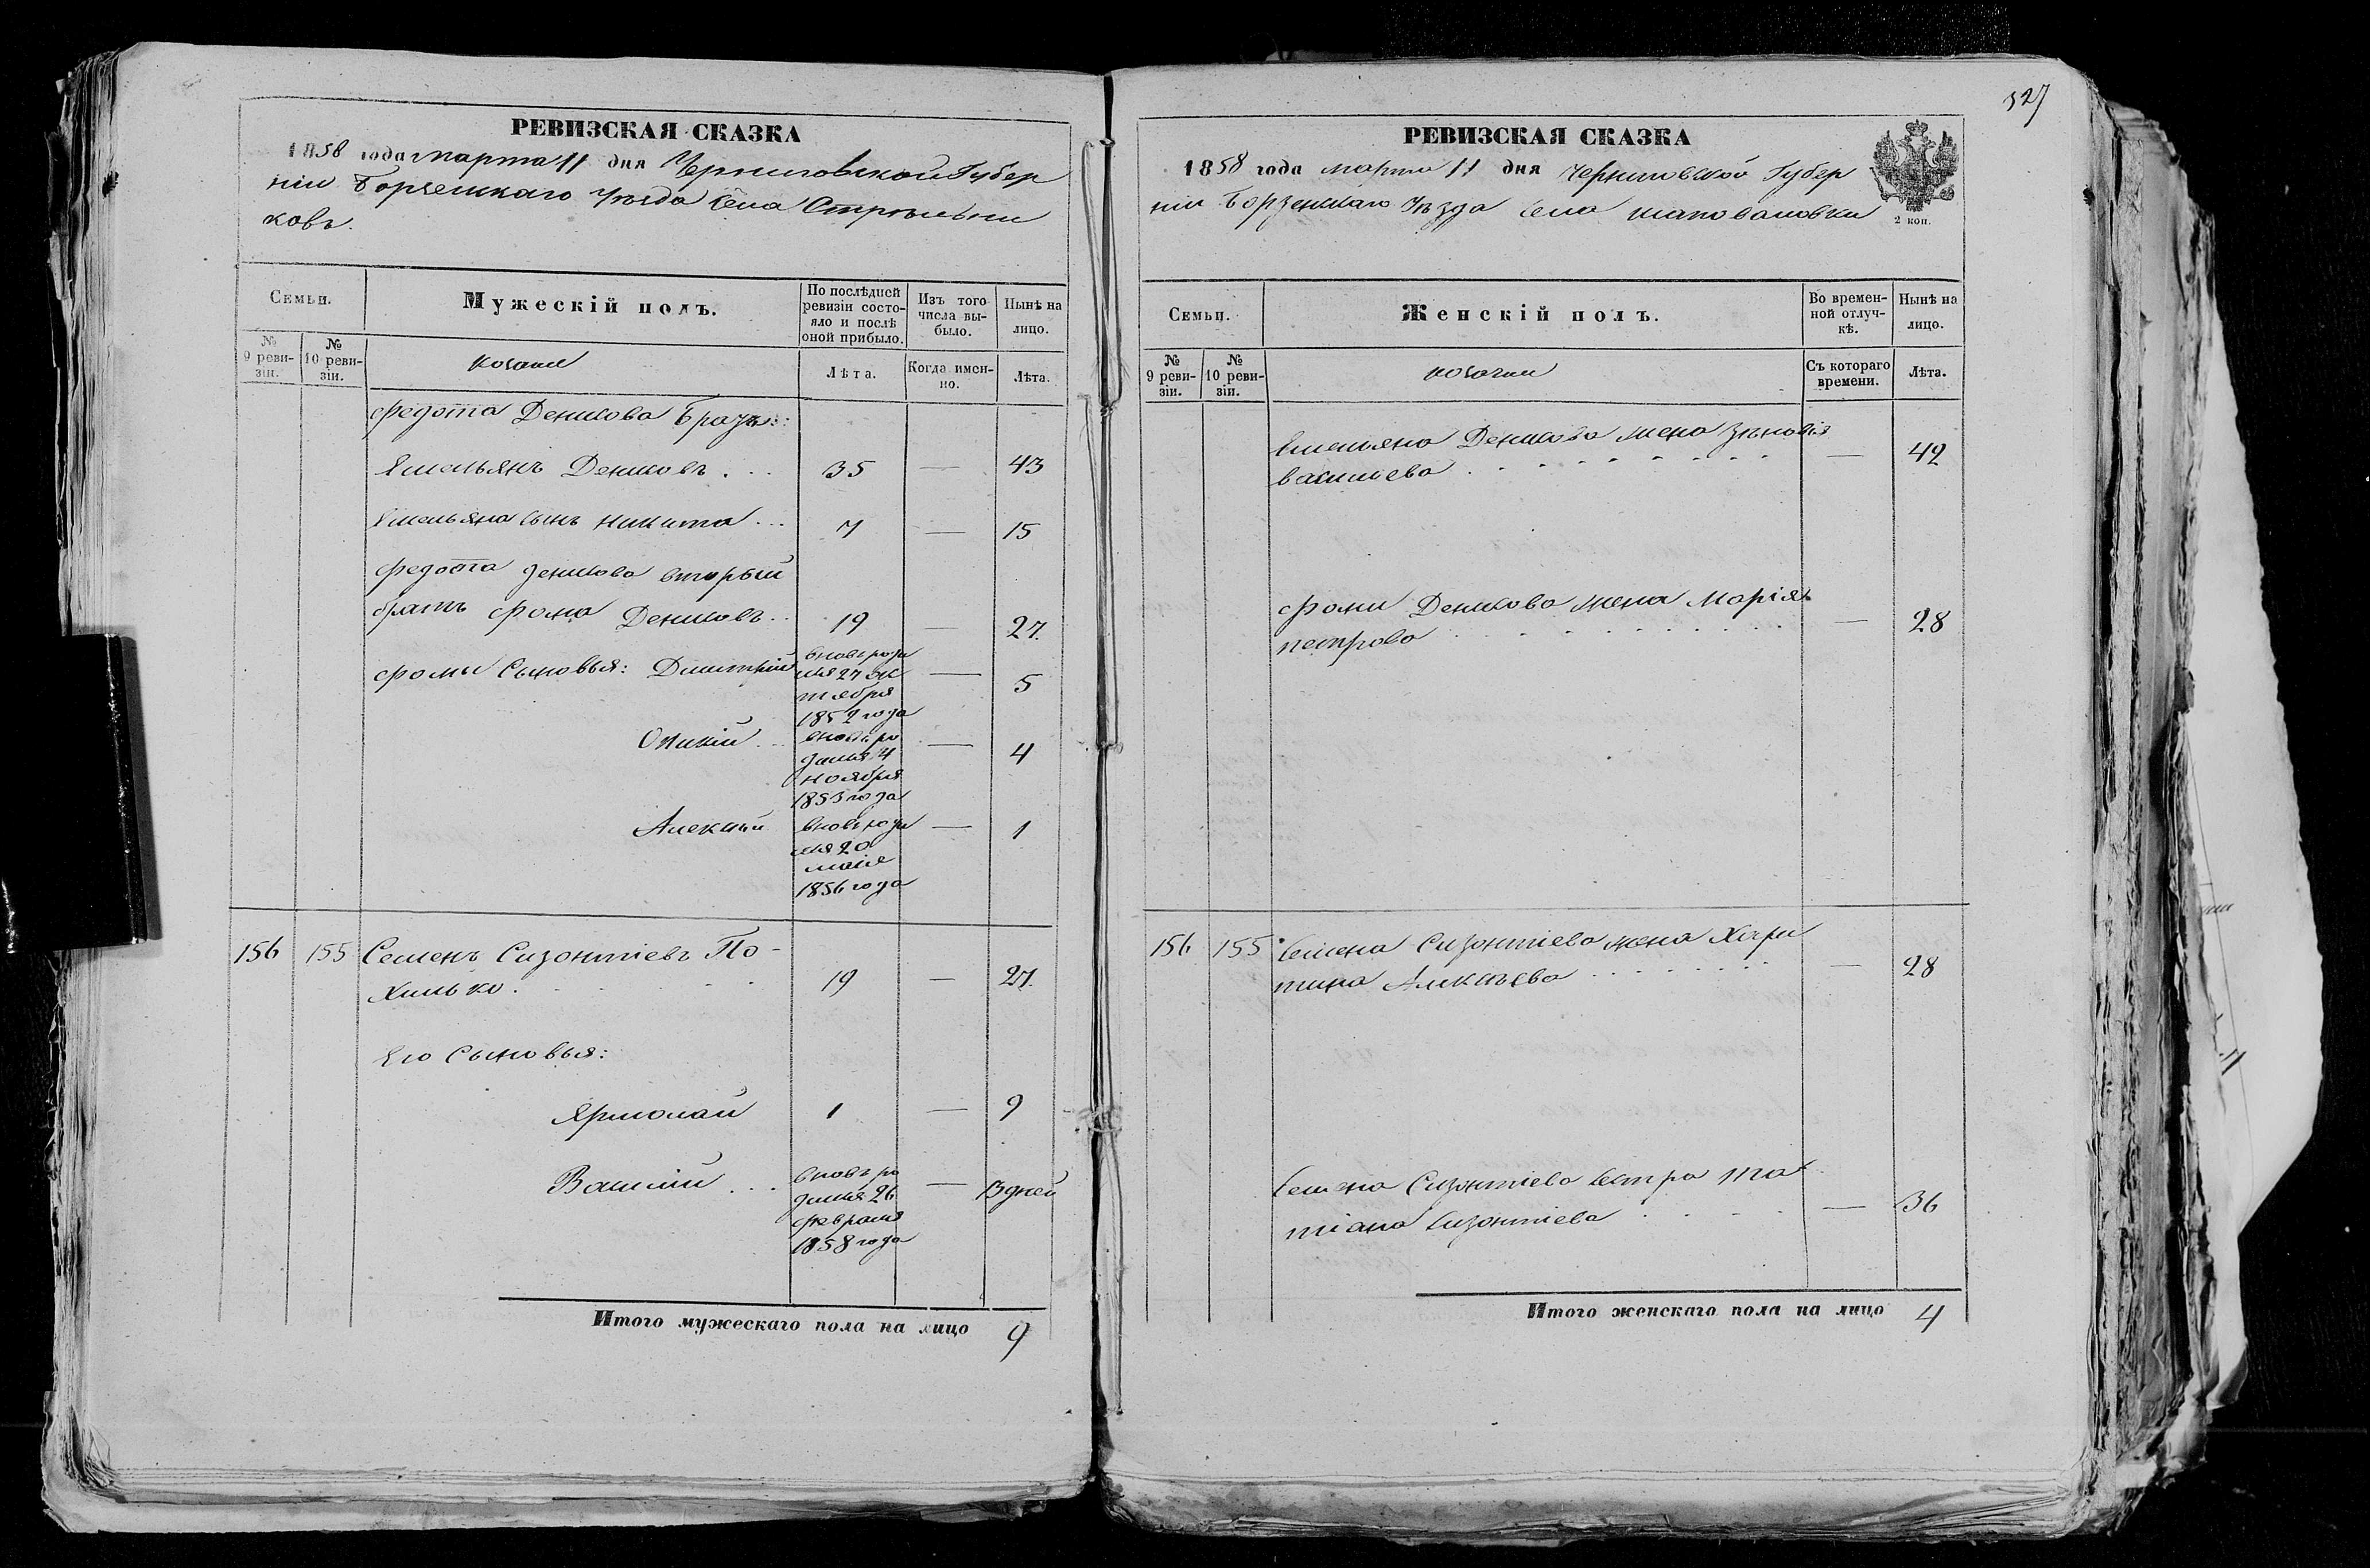 РЕВИЗСКАЯ СКАЗКА
1858 года марта 11 дня Черниговской Губер
ніи Борзенскаго Уѣзда Села Стрѣльни
ковъ.
Семьи.
Мужескій полъ.
По послѣдней ревизіи состояло и послѣ оной прибыло.
Изъ того числа выбыло.
Нынѣ на лицо.
№ 9 ревизіи.
№ 10 ревизіи.
козаки
Лѣта.
Когда именно.
Лѣта.
Федота Денисова Братъ:
Емельянъ Денисовъ . . . 35 — 43
Емельяна сынъ Никита . . . 7 — 15
Федота Денисова вторый
братъ Фома Денисовъ . . 19 — 27.
Фомы Сыновья: Дмитрій
вновь роди
лся 27 ок
тября
1852 года
— 5
вновь ро
дился 4
ноября
1853 года
— 4
Алексѣй
вновь роди
лся 20
маія
1856 года
— 1
156 155 Семенъ Сизонтіевъ По-
хилько . . . . . 19 — 27.
Его Сыновья:
Ярмолай 1 — 9
Василій . . .
вновь ро
дился 26
февраля
1858 года
— 13 дней
Итого мужескаго пола на лицо 9
327
РЕВИЗСКАЯ СКАЗКА
1858 года марта 11 дня Черниговской Губер
ніи Борзенскаго Уѣзда Села Шаповаловки
2 коп.
Семьи.
Женскій полъ.
Во временной отлучкѣ.
Нынѣ на лицо.
№ 9 ревизіи.
№ 10 ревизіи.
козачки
Съ котораго времени.
Лѣта.
Емельяна Денисова жена Зѣновія
Васильева . . . . . . . . . — 42
Фомы Денисова жена Марія
Петрова . . . . . . . . . — 28
156 155 Семена Сизонтіева жена Хари
тина Алексѣева . . . . . . . — 28
Семена Сизонтіева сестра Та
тіана Сизонтіева . . . . — 36
Итого женскаго пола на лицо 4